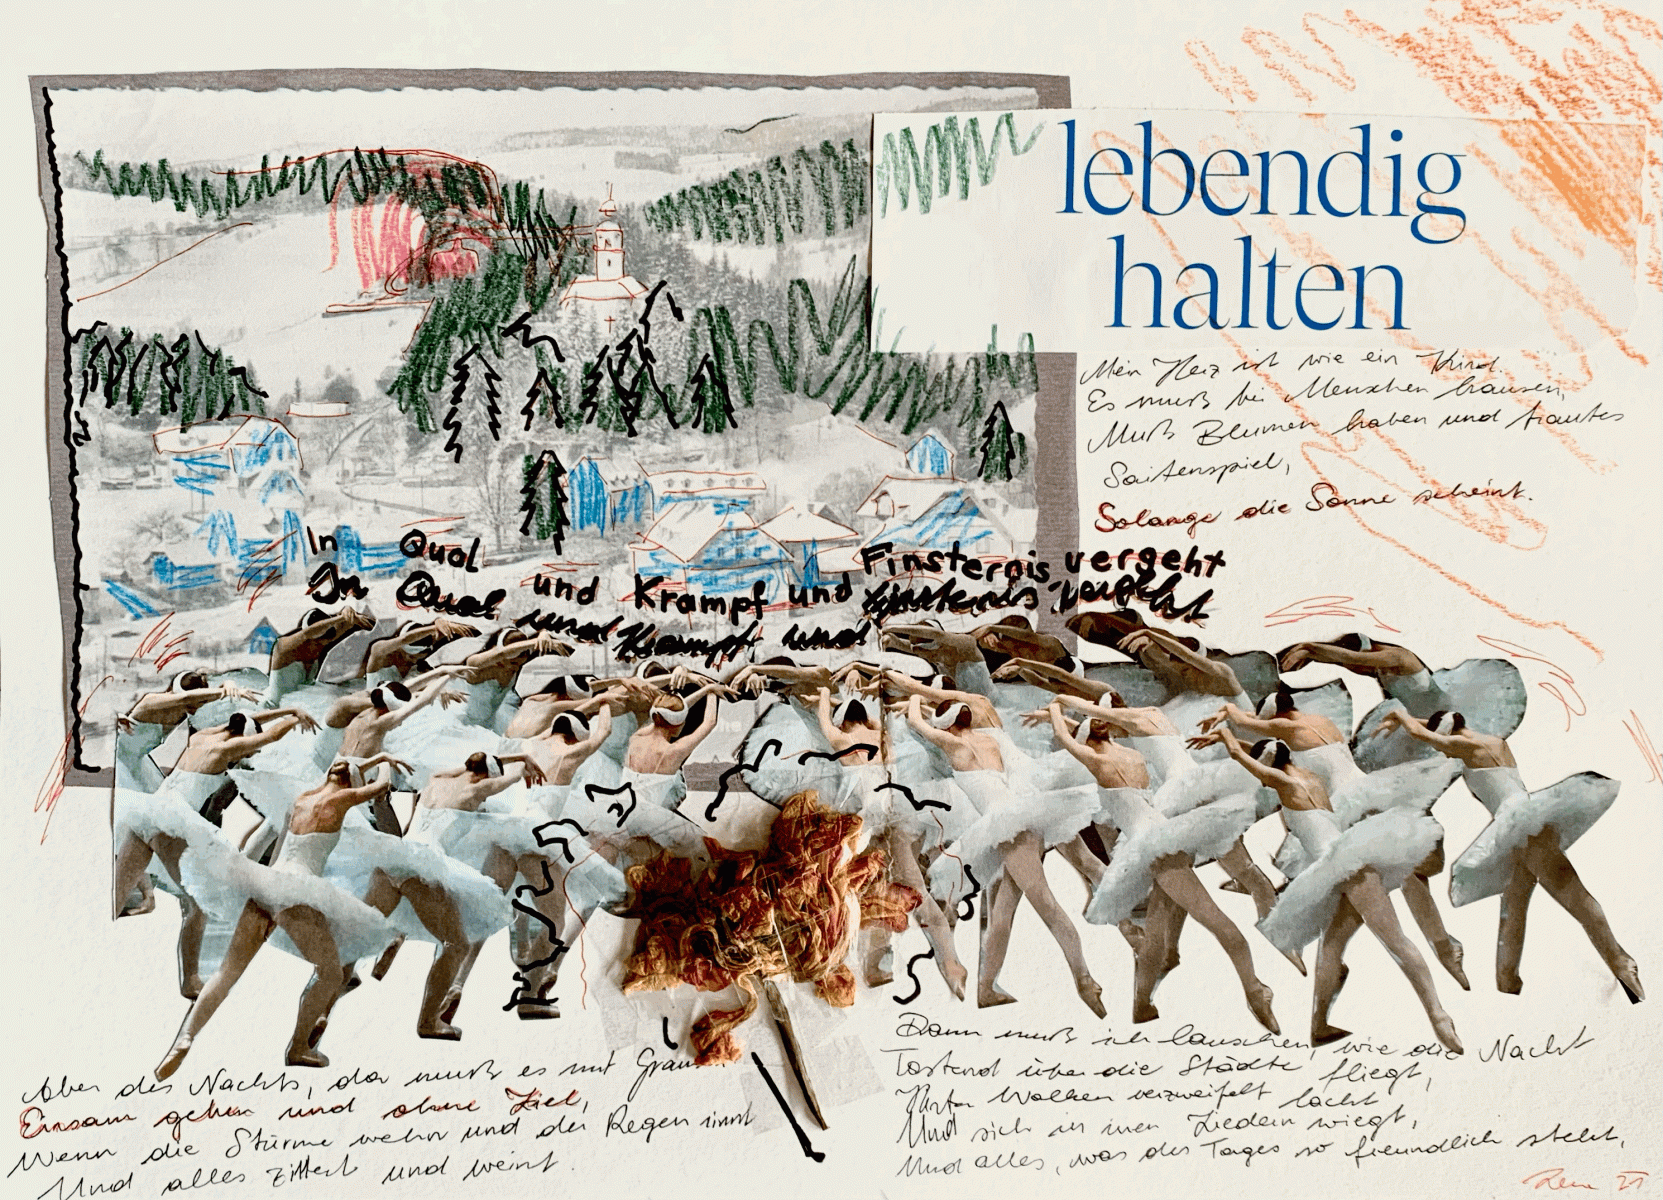 lebendig
halten
Mein Herz ist wie ein Kind.
Es muß bei Menschen hausen,
Muß Blumen haben und trautes
Saitenspiel,
Solange die Sonne scheint.
In Qual und Krampf und Finsternis vergeht
In Qual und Krampf und Finsternis vergeht
Aber des Nachts, da muß es mit Grau
Einsam gehen und ohne Ziel,
Wenn die Stürme wehn und der Regen rinnt
Und alles zittert und weint.
Dann muß ich lauschen, wie die Nacht
Tastend über die Städte fliegt,
Hinter Wolken verzweifelt lacht
Und sich in irren Liedern wiegt,
Und alles, was des Tages so freundlich steht,